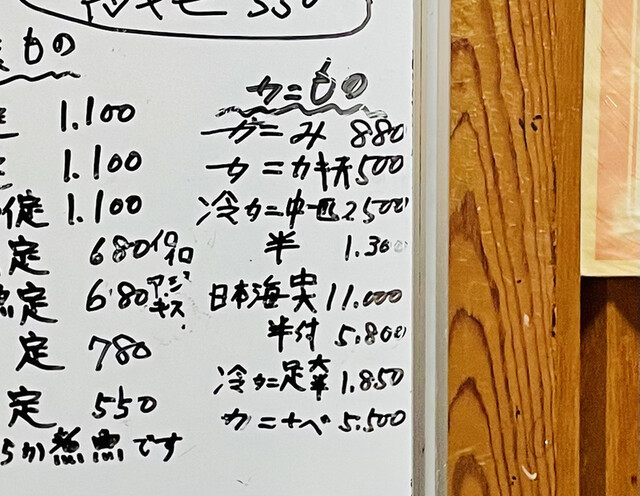 550
もの
1.100
1.100
定 1.100
定 680
定 680 アジ キス
定 780
定 550
か煮魚です
カニもの
カニみ 880
カニカキ天 500
冷カニ中一匹 2500
半 1.300
日本海 11.000
半付 5.800
冷カニ足 1.850
カニナベ 5.500